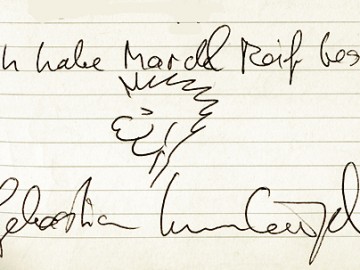 h habe Marcel Reif bes
Sebastian